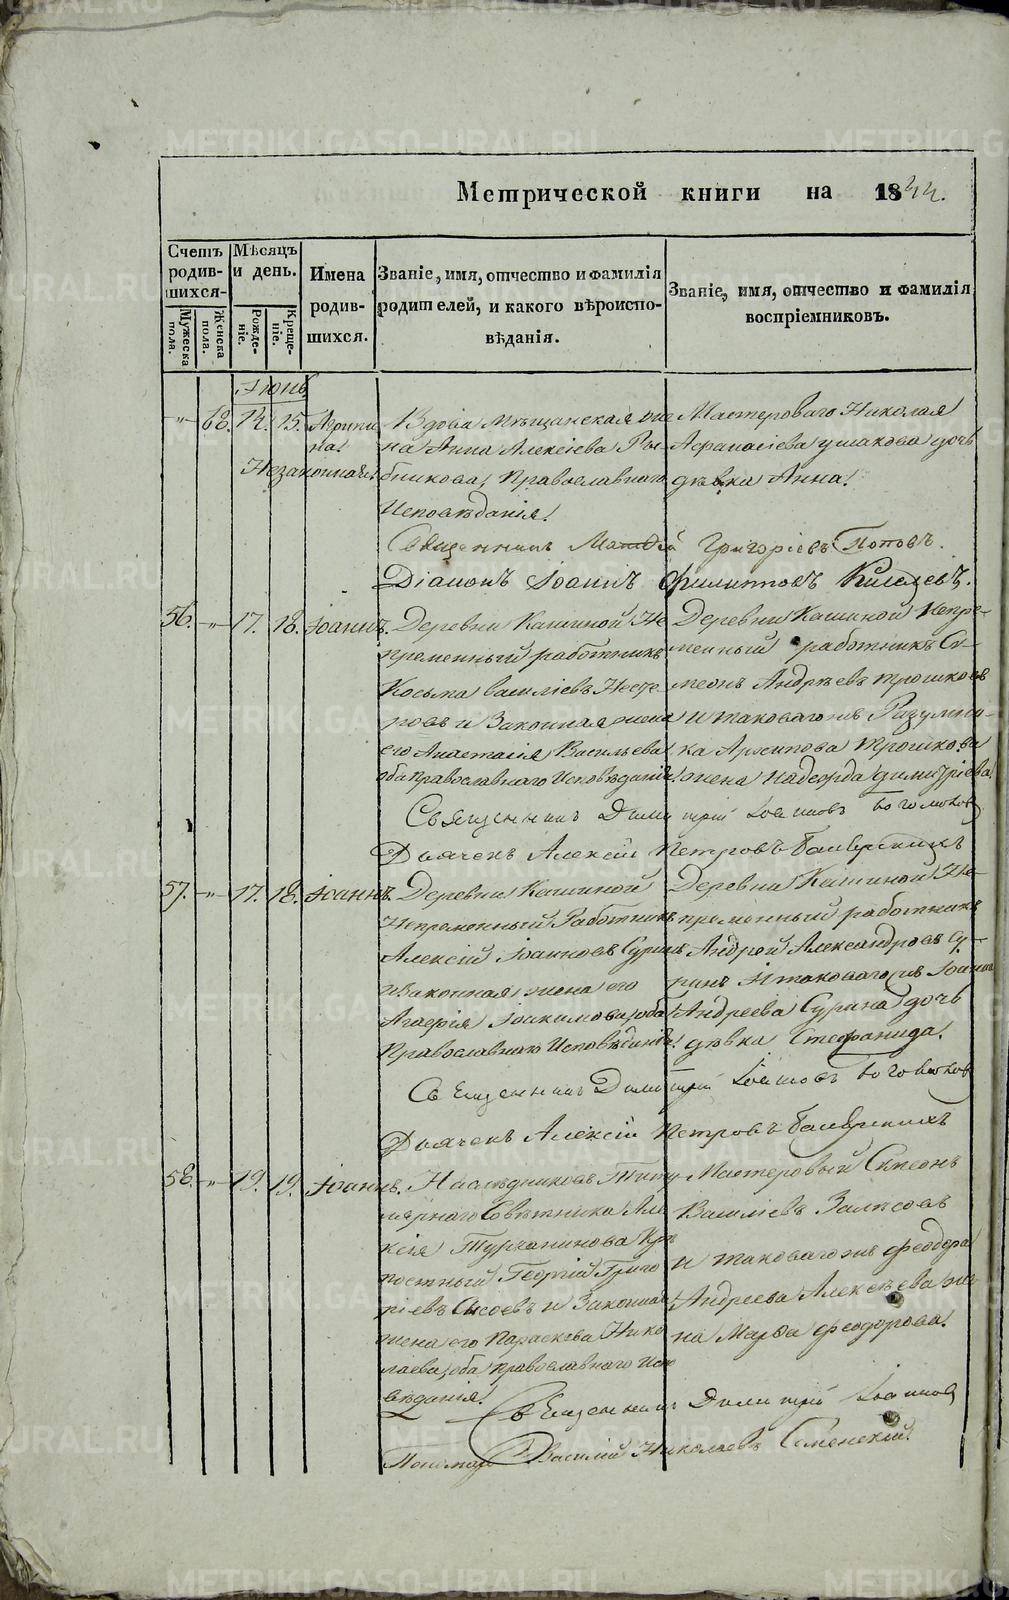 Метрической книги на 1844.
Счетъ родившихся.
Мужеска пола.
Женска пола.
Мѣсяцъ и день.
Рожденіе.
Крещеніе.
Имена родившихся.
Званіе, имя, отчество и фамилія родителей, и какого вѣроисповѣданія.
Званіе, имя, отчество и фамилія воспріемниковъ.
Іюнь
68. 14. 15. Агрипина
Незаконная
Вдова мѣщанская жена Анна Алексіева Рыбникова, Православнаго Исповѣданія.
Мастероваго Николая Афанасіева Ушакова дочь дѣвка Анна.
Священникъ Матѳій Григоріевъ Поповъ.
Діаконъ Іоаннъ Филипповъ Киселевъ.
56. 17. 18. Іоаннъ.
Деревни Кашиной Непременный работникъ
Косьма Василіевъ Нестеровъ и Законная жена
его Анастасія Васильева
оба православнаго Исповѣданія.
Деревни Кашиной Непременный работникъ Симеонъ Андреевъ Трошковъ
и таковагожъ Разумника Архипова Трошкова
жена Надежда Димитріева
Священникъ Димитрій Іоанновъ
Дьячекъ Алексій Петровъ
57. 17. 18. Іоаннъ.
Деревни Кашиной
Непременный Работникъ
Алексій Іоанновъ Суринъ
и Законная жена его
Агафія Іоакимова, оба
Православнаго Исповѣданія.
Деревни Кашиной Непременный работникъ
Андрей Александровъ Суринъ И таковагожъ Іоанна
Андреева Сурина дочь
дѣвка Стефанида.
Священникъ Димитрій Іоанновъ
Дьячекъ Алексій Петровъ
58. 19. 19. Іоаннъ.
Наслѣдниковъ Титулярного Совѣтника Алексія Турчанинова Крѣпостный Георгій Григоріевъ Сысоевъ и Законная
жена его Параскева Николаева, оба православнаго Исповѣданія.
Мастеровый Симеонъ
Василіевъ
и таковагожъ Феодора
Андреева Алексѣева жена Марфа Феодорова.
Священникъ Димитрій Іоанновъ
Пономарь Василій Николаевъ
METRIKI.GASO-URAL.RU